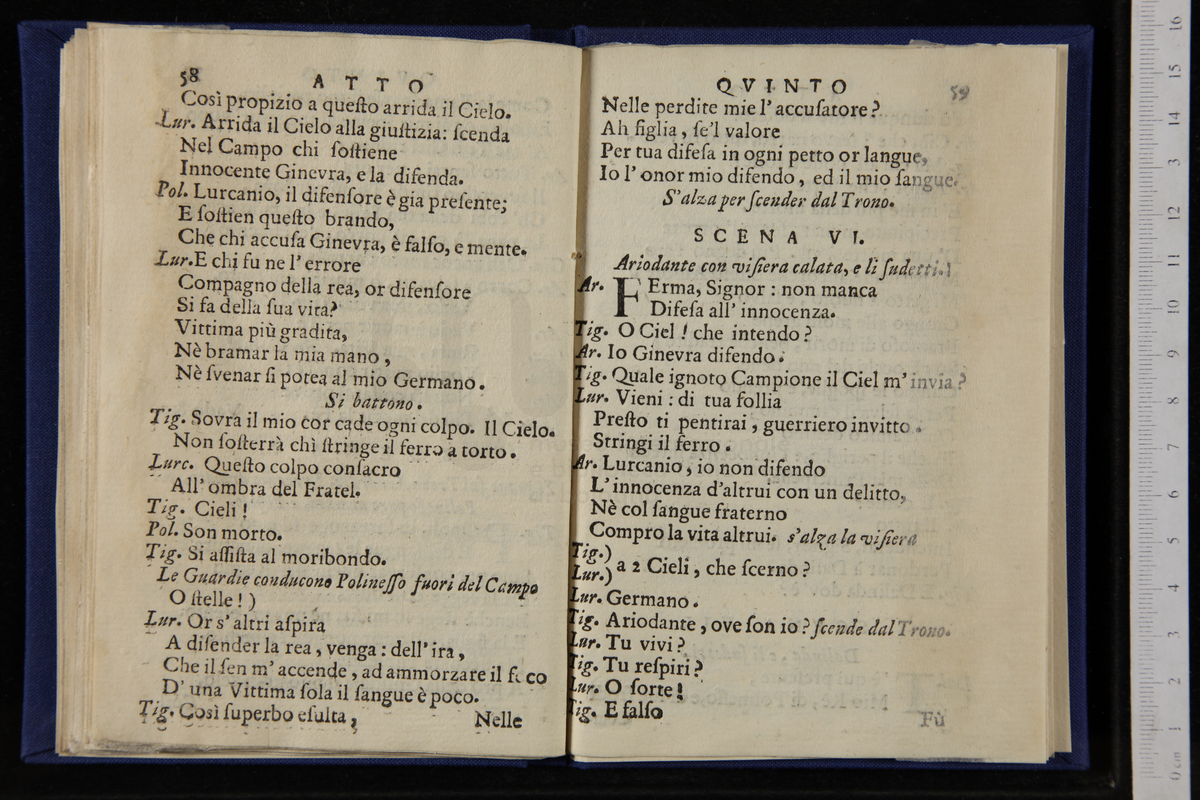 58 ATTO
Così propizio a queſto arrida il Cielo.
Lur. Arrida il Cielo alla giuſtizia: ſcenda
Nel Campo chi ſoſtiene
Innocente Ginevra, e la difenda.
Pol. Lurcanio, il difenſore è gia preſente;
E ſoſtien queſto brando,
Che chi accuſa Ginevra, è falſo, e mente.
Lur. E chi fu ne l' errore
Compagno della rea, or difenſore
Si fa della ſua vita?
Vittima più gradita,
Nè bramar la mia mano,
Nè ſvenar ſi potea al mio Germano.
Si battono.
Tig. Sovra il mio cor cade ogni colpo. Il Cielo.
Non ſoſterrà chì ſtringe il ferro a torto.
Lurc. Queſto colpo conſacro
All' ombra del Fratel.
Tig. Cieli!
Pol. Son morto.
Tig. Si aſſiſta al moribondo.
Le Guardie conducono Polineſſo fuori del Campo
O ſtelle!)
Lur. Or s' altri aſpira
A difender la rea, venga: dell' ira,
Che il ſen m' accende, ad ammorzare il foco
D' una Vittima ſola il ſangue è poco.
Tig. Così ſuperbo eſulta,
Nelle
QVINTO 59
Nelle perdite mie l' accuſatore?
Ah figlia, ſe'l valore
Per tua difeſa in ogni petto or langue,
Io l' onor mio difendo, ed il mio ſangue.
S'alza per ſcender dal Trono.
SCENA VI.
Ariodante con viſiera calata, e li ſudetti.
Ar. FErma, Signor: non manca
Difeſa all' innocenza.
Tig. O Ciel! che intendo?
Ar. Io Ginevra difendo.
Tig. Quale ignoto Campione il Ciel m' invia?
Lur. Vieni: di tua follia
Preſto ti pentirai, guerriero invitto.
Stringi il ferro.
Ar. Lurcanio, io non difendo
L' innocenza d'altrui con un delitto,
Nè col ſangue fraterno
Compro la vita altrui. s'alza la viſiera
Tig.)
Lur.) a 2 Cieli, che ſcerno?
Lur. Germano.
Tig. Ariodante, ove ſon io? ſcende dal Trono.
Lur. Tu vivi?
Tig. Tu reſpiri?
Lur. O ſorte!
Tig. E falſo
Fù